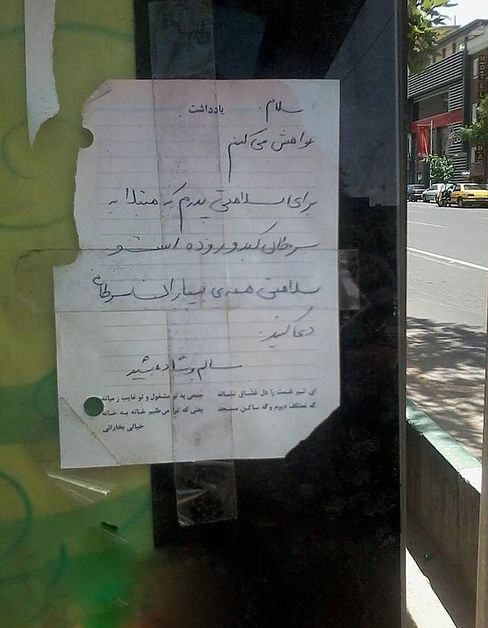 سلام
یادداشت
خواهش می کنم
برای سلامتی پدرم که مبتلا به
سرطان کبد و روده است و
سلامتی همه ی بیماران سرطانی
دعا کنید.
سالم و شاد باشید
ای تیر غمت را دل عشاق نشانه جمعی به تو مشغول و تو غایب ز میانه
گه معتکف دیرم و گه ساکن مسجد یعنی که ترا می طلبم خانه به خانه
خیالی بخارائی